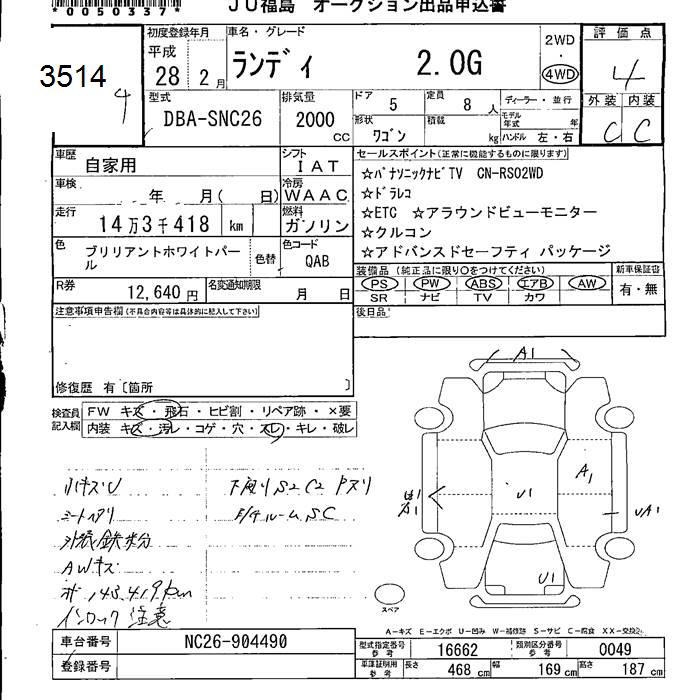 *0050337*
JU福島 オークション出品申込書
3514
4
初度登録年月
平成
28 2月
車名・グレード
ランディ 2.0G
2WD
・
4WD
評価点
4
外装 内装
C C
型式
DBA-SNC26
排気量
2000
CC
ドア 5
定員 8 人
形状 ワゴン
積載 kg
ディーラー・並行
モデル年式 年
ハンドル 左・右
車歴
自家用
シフト
IAT
車検
年 月( 日)
冷房
WAAC
走行
14万3千418 km
燃料
ガソリン
色
ブリリアントホワイトパール
色替
色コード
QAB
R券
12,640円
名変通知期限
月 日
セールスポイント(正常に機能するものに限ります)
☆パナソニックナビTV CN-RS02WD
☆ドラレコ
☆ETC ☆アラウンドビューモニター
☆クルコン
☆アドバンスドセーフティ パッケージ
装備品(純正品に限り○をつけてください)
PS PW ABS エアB AW
SR ナビ TV カワ
新車保証書
有・無
注意事項申告欄(不具合内容等は具体的に記入して下さい)
後日品
修復歴 有〔箇所 〕
検査員
記入欄
FW キズ・飛石・ヒビ割・リペア跡・×要
内装 キズ・汚レ・コゲ・穴・スレ・キレ・破レ
ハキズU
シートヘタリ
下廻りS2C2
AWキズ
ボ 143,419km
インロック注意
A1
A1
U1
A1
UA1
U1
スペア
A-キズ E-エクボ U-凹み W-補修跡 S-サビ C-腐食 XX-交換済
車台番号
NC26-904490
登録番号
型式指定番号
参考
16662
類別区分番号
参考
0049
車庫証明用
参考
長さ 468 cm
幅 169 cm
高さ 187 cm